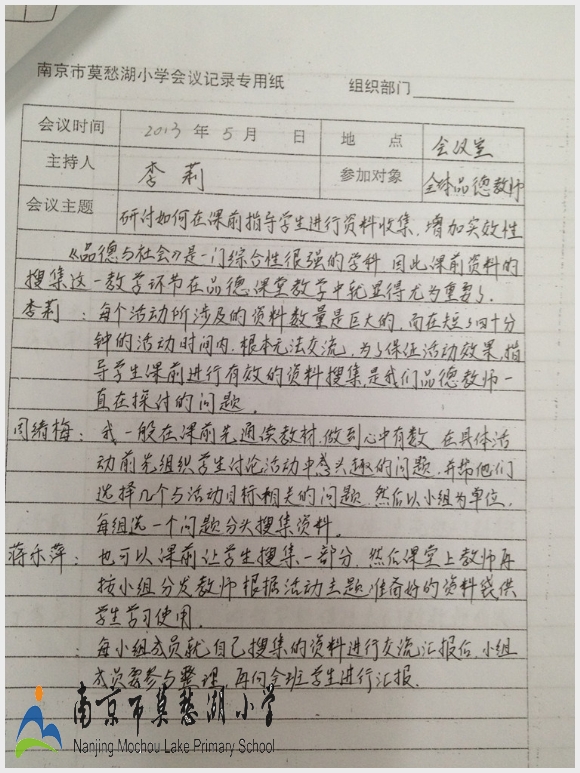 南京市莫愁湖小学会议记录专用纸 组织部门
会议时间 2013 年 5 月 日 地 点 会议室
主持人 李莉 参加对象 全体品德教师
会议主题 研讨如何在课前指导学生进行资料收集,增加实效性
《品德与社会》是一门综合性很强的学科,因此课前资料的
搜集这一教学环节在品德课堂教学中就显得尤为重要了。
李莉:每个活动所涉及的资料数量是巨大的,而在短短四十分
钟的活动时间内,根本无法交流,为了保证活动效果,指
导学生课前进行有效的资料搜集,是我们品德教师一
直在探讨的问题。
周绪梅:我一般在课前先通读教材,做到心中有数,在具体活
动前先组织学生讨论活动中感兴趣的问题,并帮他们
选择几个与活动目标相关的问题,然后以小组为单位,
每组选一个问题分头搜集资料。
蒋乐萍:也可以课前让学生搜集一部分,然后课堂上教师再
按小组分发教师根据活动主题准备好的资料袋供
学生学习使用。
:每小组成员就自己搜集的资料进行交流汇报后,小组
成员要参与整理,再向全班学生进行汇报.
南京市莫愁湖小学
Nanjing Mochou Lake Primary School